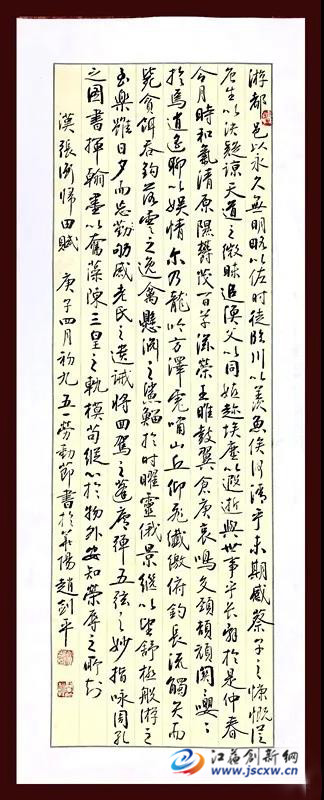 游都邑以永久無明略以佐時徒臨川以羨魚俟河清乎未期感蔡子之慷慨從
唐生以決疑諒天道之微昧追漁父以同嬉超埃塵以遐逝與世事乎長辭於是仲春
令月時和氣清原隰鬱茂百草滋榮王雎鼓翼倉庚哀鳴交頸頡頏關關嚶嚶
於焉逍遥聊以娱情尔乃龍吟方澤虎嘯山丘仰飛纖繳俯釣長流觸矢而
斃貪餌吞鈎落雲之逸禽懸淵之鯊鰡於時曜靈俄景繼以望舒極般游之
至樂雖日夕而忘劬感老氏之遺誡將回駕之蓬廬彈五弦之妙指咏周孔
之圖書揮翰墨以奮藻陳三皇之軌模苟縱心於物外安知榮辱之所如
漢張衡歸田賦 庚子四月初九五一勞動節書於華陽趙剑平
江苏创新网
www.jscxw.com.cn